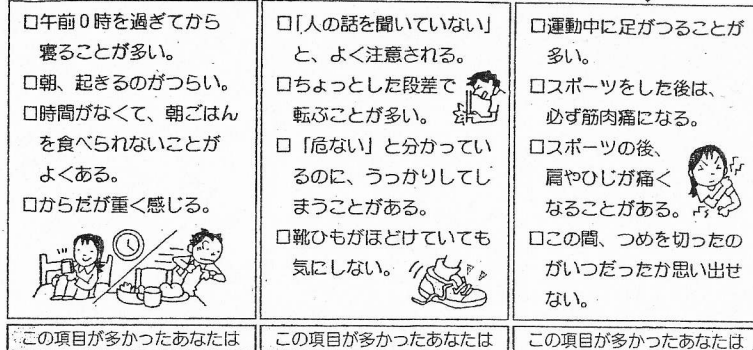 □午前0時を過ぎてから
寝ることが多い。
□朝、起きるのがつらい。
□時間がなくて、朝ごはん
を食べられないことが
よくある。
□からだが重く感じる。
この項目が多かったあなたは
□「人の話を聞いていない」
と、よく注意される。
□ちょっとした段差で
転ぶことが多い。
□「危ない」と分かってい
るのに、うっかりしてし
まうことがある。
□靴ひもがほどけていても
気にしない。
この項目が多かったあなたは
□運動中に足がつることが
多い。
□スポーツをした後は、
必ず筋肉痛になる。
□スポーツの後、
肩やひじが痛く
なることがある。
□この間、つめを切ったの
がいつだったか思い出せ
ない。
この項目が多かったあなたは